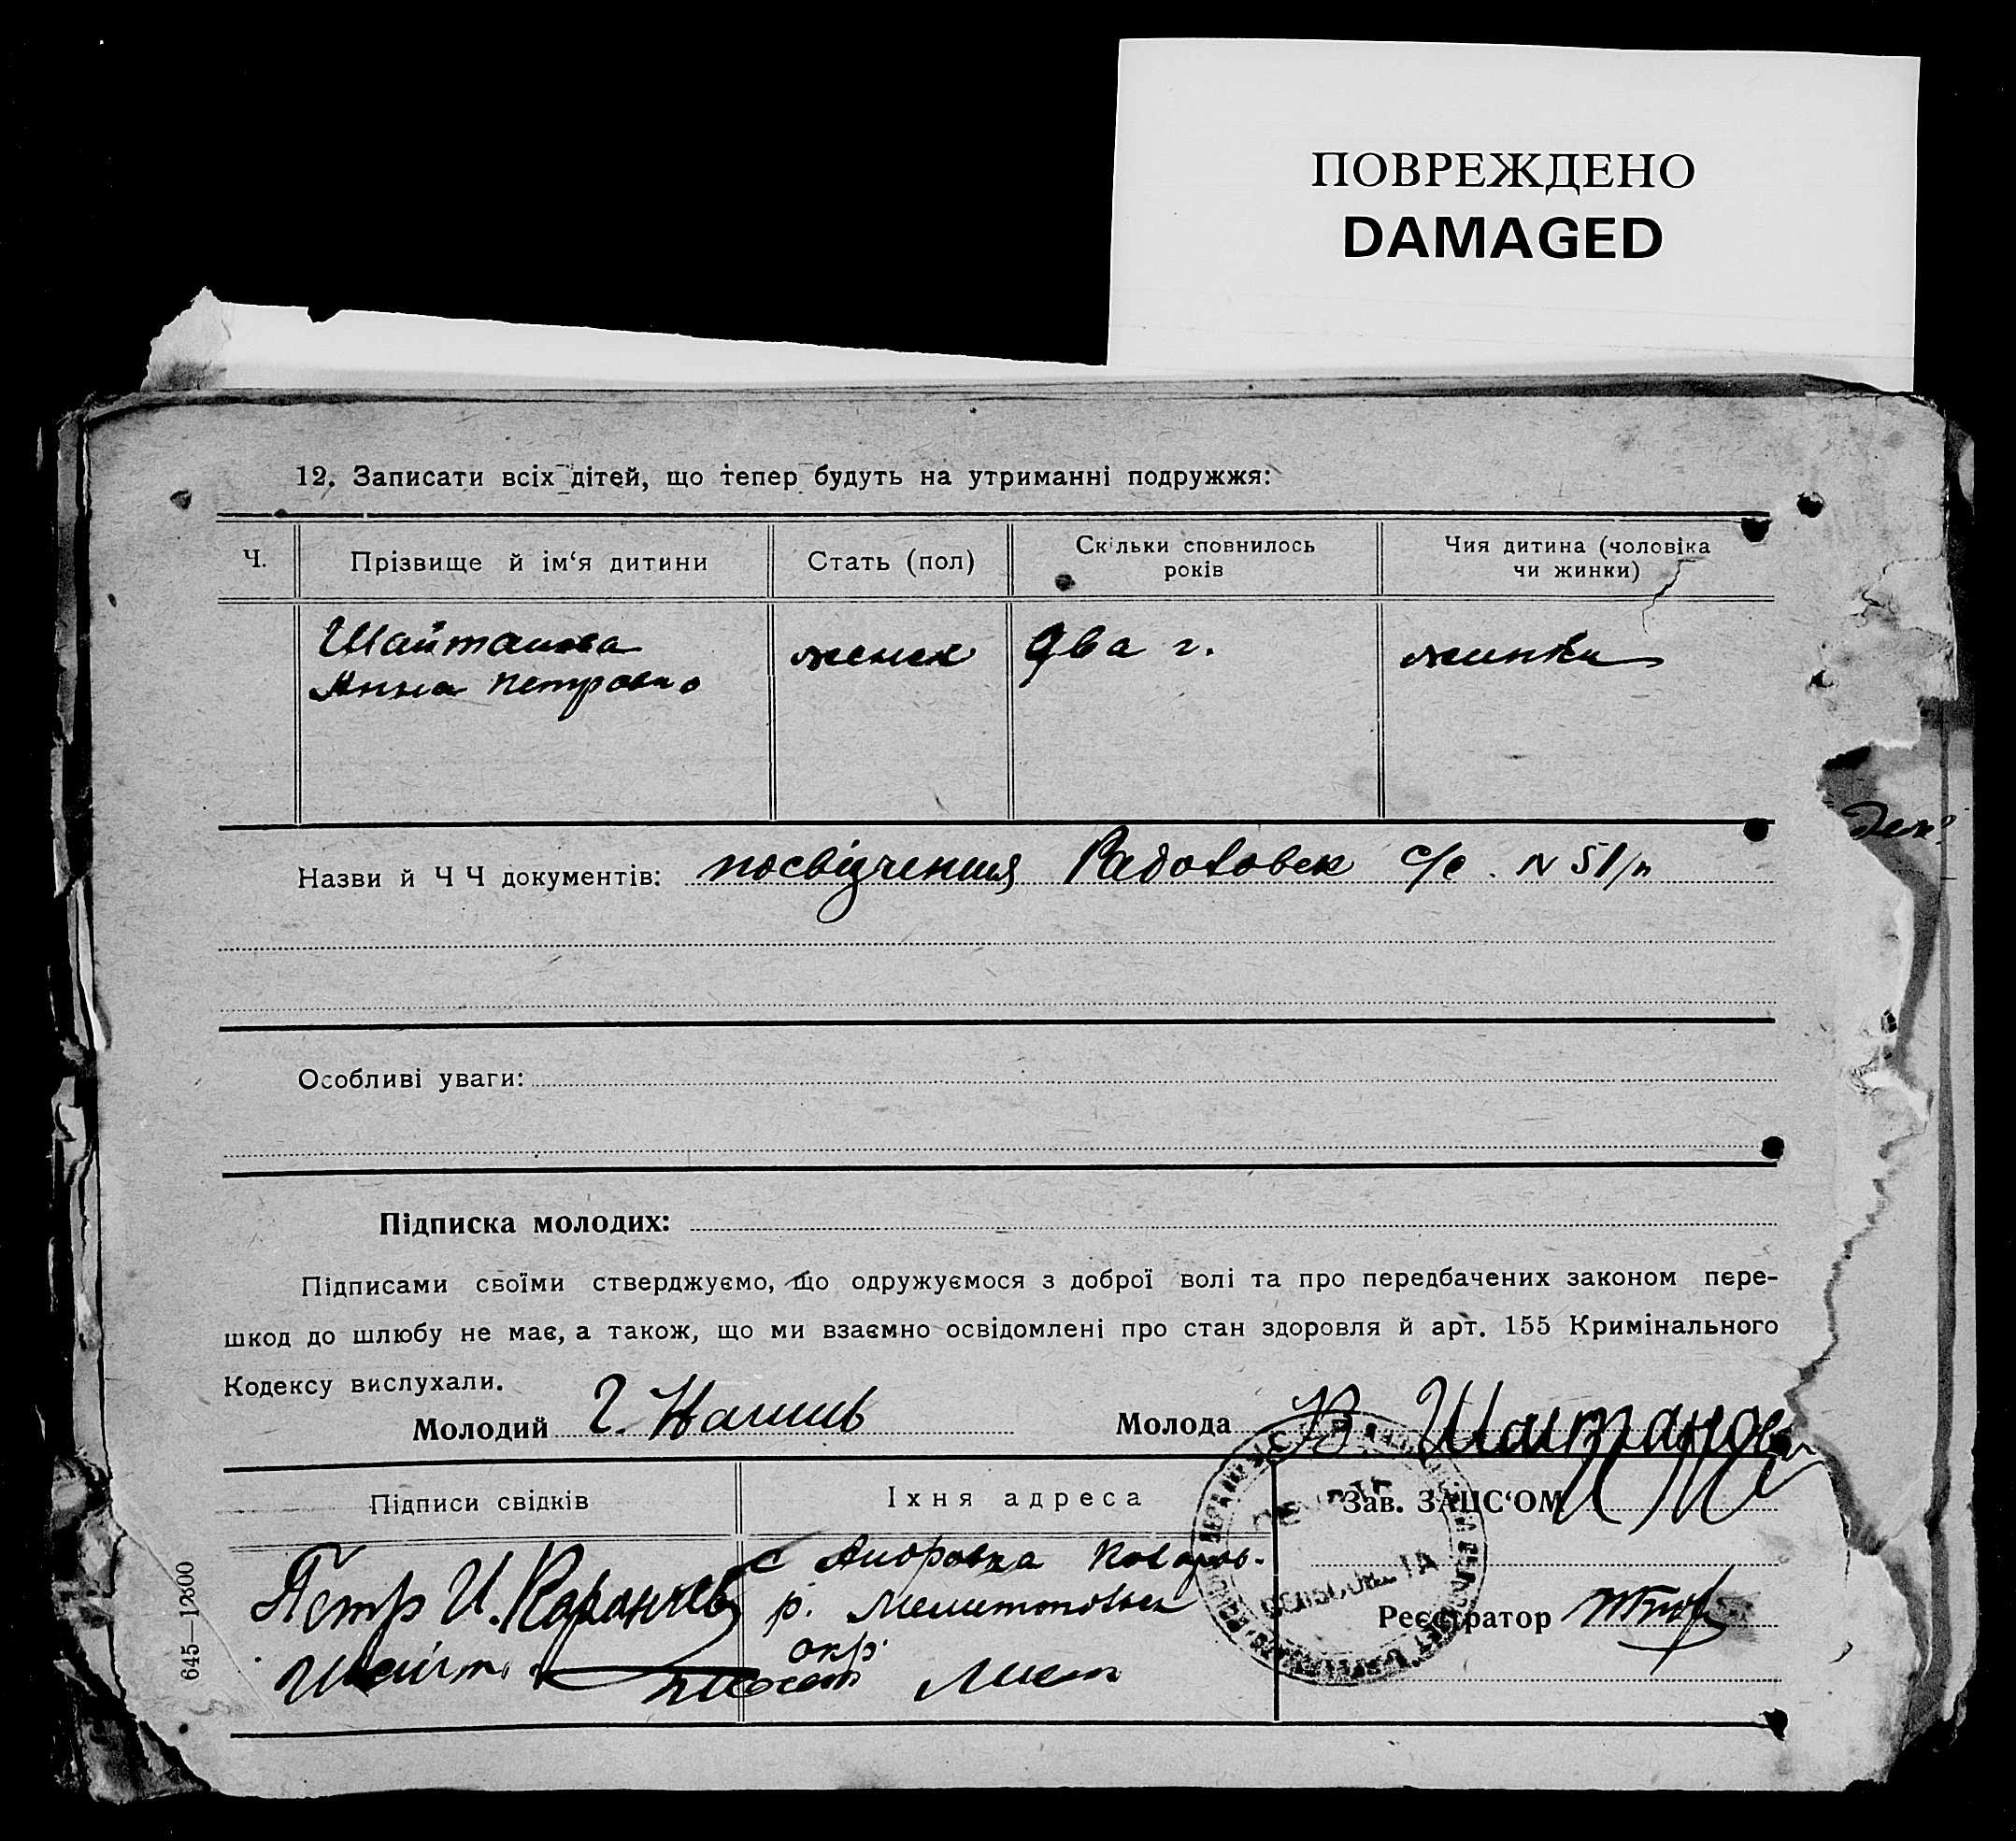 ПОВРЕЖДЕНО
DAMAGED
12. Записати всіх дітей, що тепер будуть на утриманні подружжя:
Ч.
Прізвище й ім‘я дитини
Стать (пол)
Скільки сповнилось
років
Чия дитина (чоловіка
чи жинки)
Шайтанова
Анна Петровна
женск
два г.
жинки
Назви й Ч Ч документів: посвідчення с/с. N 51/п
Особливі уваги:
Підписка молодих:
Підписами своїми стверджуємо, що одружуємося з доброї волі та про передбачених законом пере-
шкод до шлюбу не має, а також, що ми взаємно освідомлені про стан здоровля й арт. 155 Кримінального
Кодексу вислухали.
Молодий Г.
Молода В. Шайтанова
Підписи свідків
Їхня адреса
Зав. ЗАЦС‘ОМ
Петр И.
с
р.
окр.
Реєстратор
645—12800